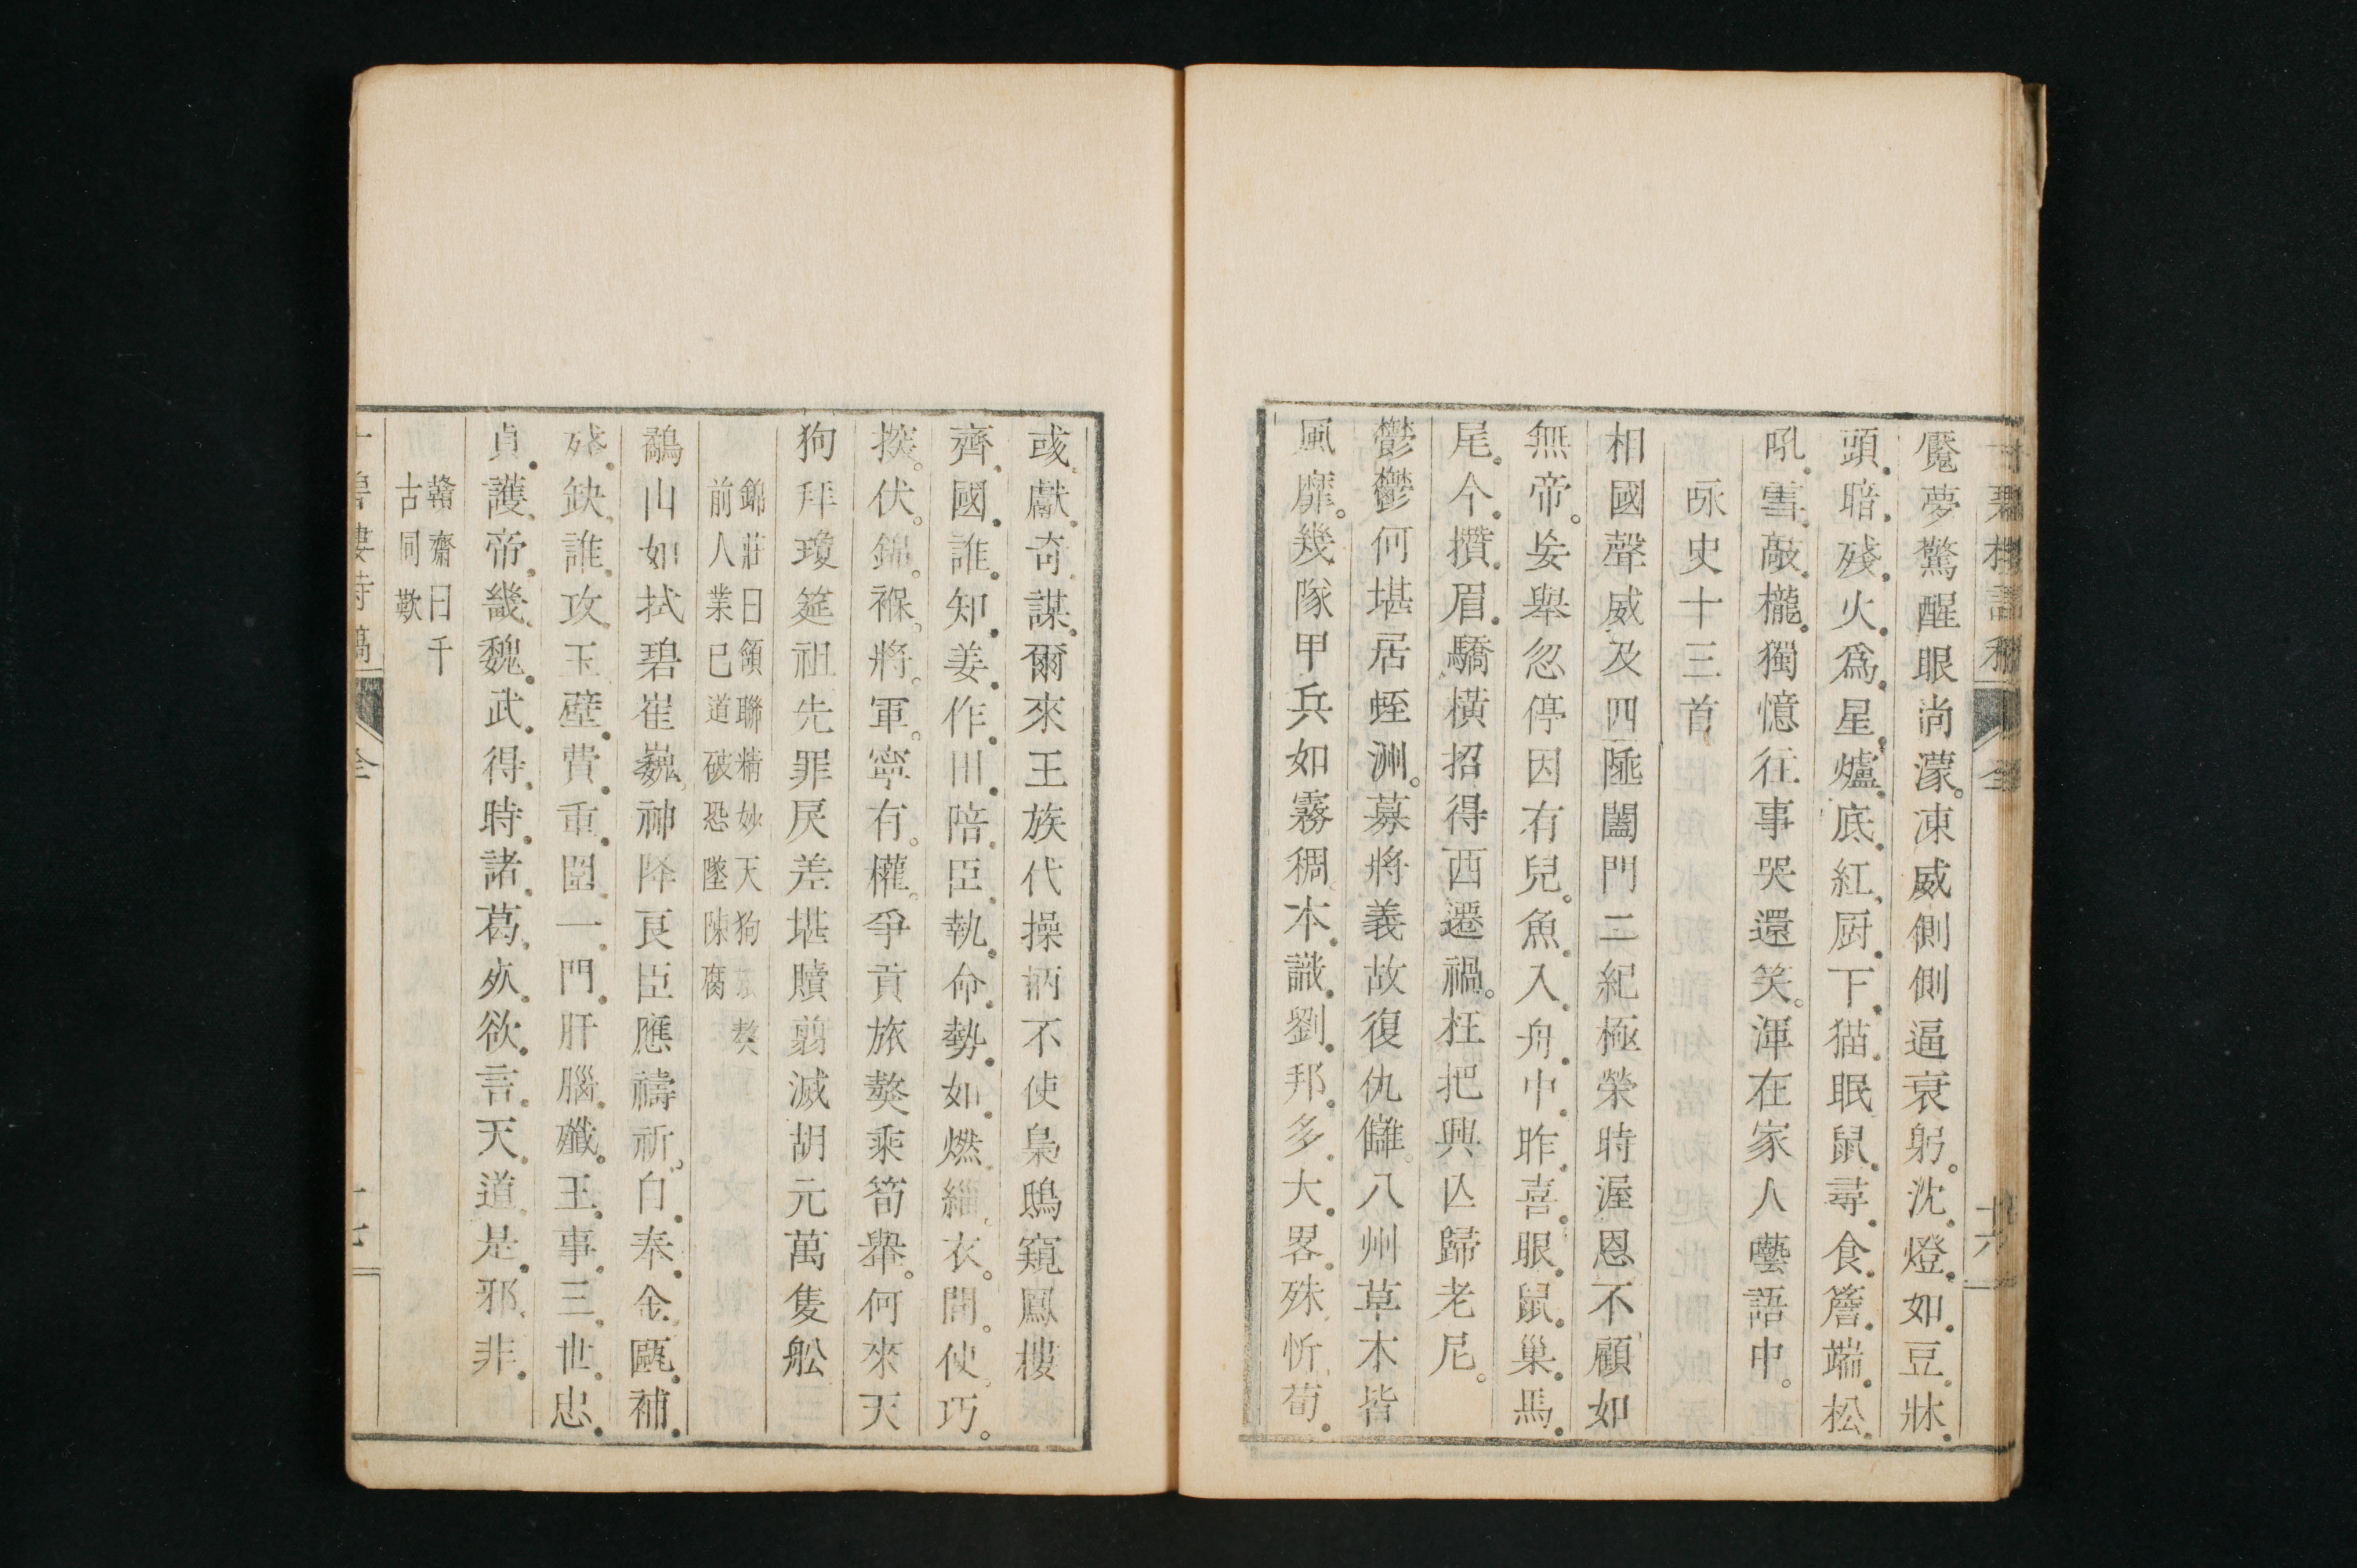 魘夢驚醒眼尚濛。凍威側側逼衰躬。沈燈如豆牀
頭暗殘火爲星爐底紅厨下猫眠鼠尋食簷端松
吼雪敲櫳獨憶往事哭還笑。渾在家人囈語中。
詠史十三首
相國聲威及四陲闔門二紀極榮時渥恩不顧如
無帝。妄舉忽停因有兒。魚入舟中昨喜眼鼠巢馬
尾今攢眉驕橫招得西遷禍。枉把興亾歸老尼。
鬱鬱何堪居蛭洲。募將義故復仇讎。八州草木皆
風靡。幾隊甲兵如霧稠本識劉邦多大畧殊忻荀
彧獻奇謀爾來王族代操柄不使梟鴟窺鳳樓
齊國誰知姜作田陪臣執命勢如燃緇衣間使巧。
挨伏。錦褓將軍。寧有權。爭貢旅獒乘筍轝。何來天
狗拜瓊筵祖先罪戾差堪贖翦滅胡元萬隻舩
錦莊曰頷聯精妙天狗旅獒
前人業已道破恐墜陳腐
鷸山如拭碧崔巍神降良臣應禱祈。白奉金甌補
殘缺誰攻玉壁費重圍一門肝腦殲王事三世忠
貞護帝畿魏武得時諸葛殀欲言天道是邪非
榦齋曰千
古同歎